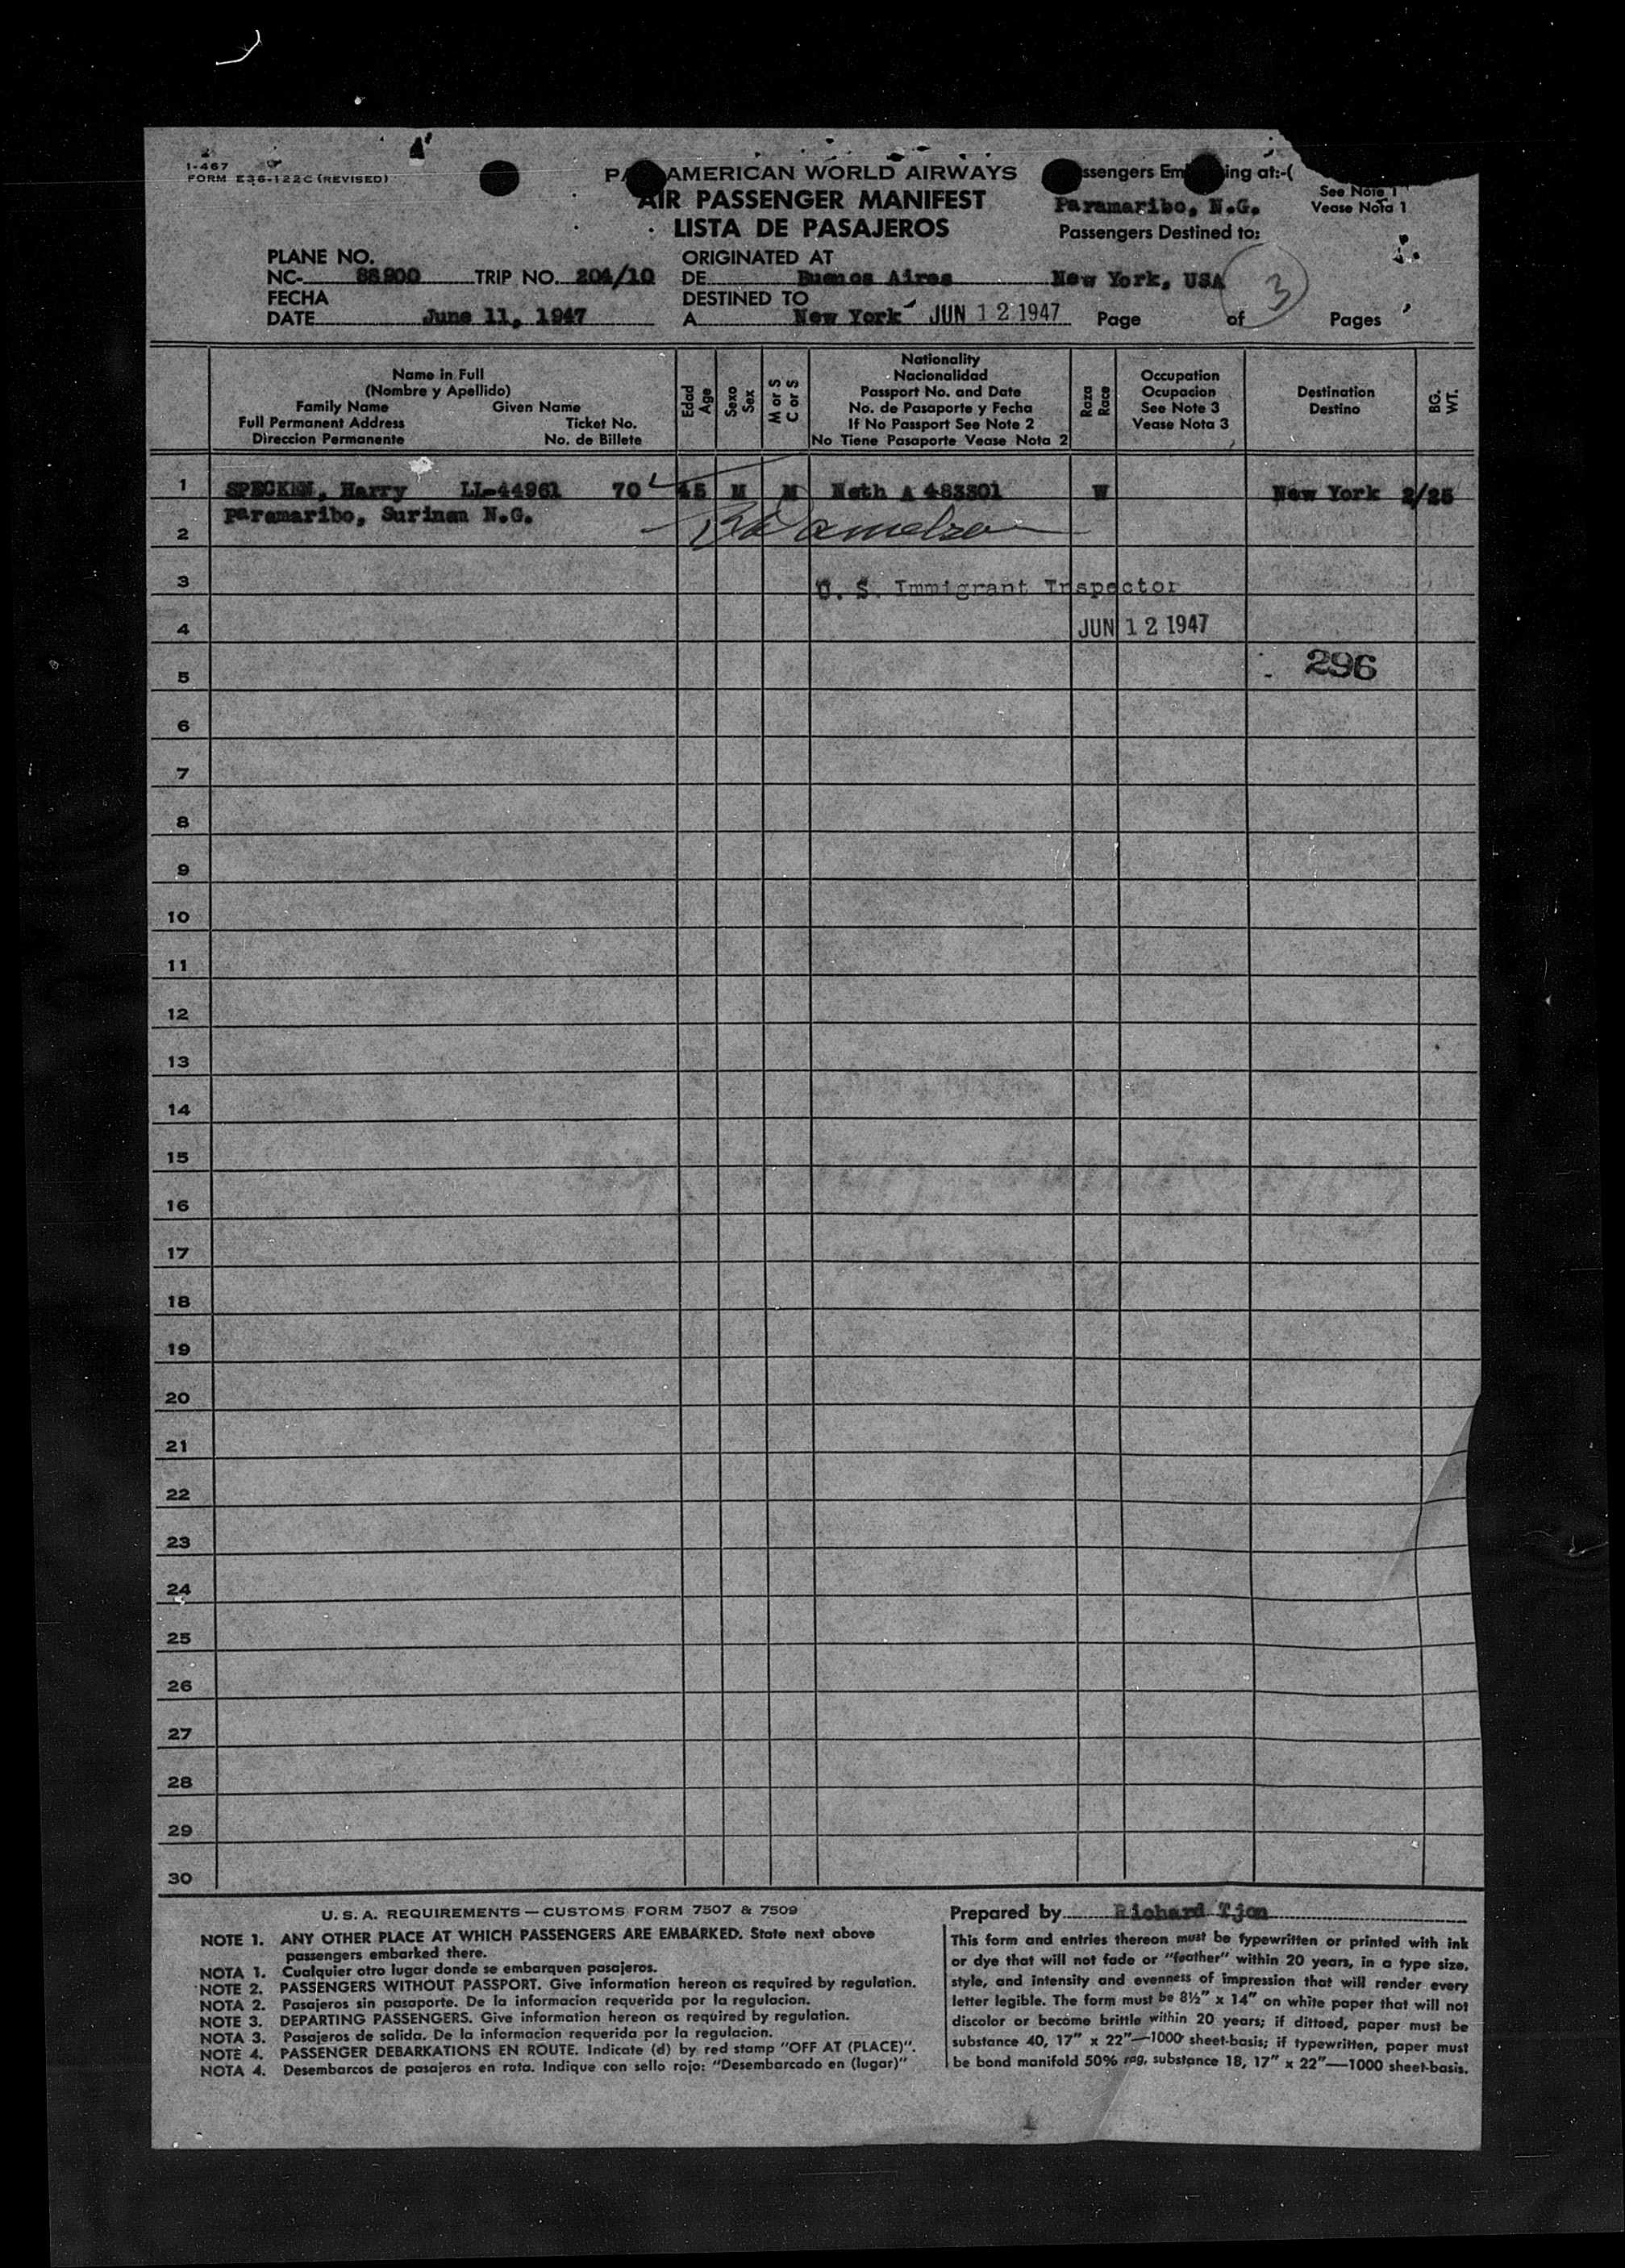 I-467
FORM E36-122C (REVISED)
AMERICAN WORLD AIRWAYS
AIR PASSENGER MANIFEST
LISTA DE PASAJEROS
Passengers Embarking at:-(
See Note 1
Vease Nota 1
Paramaribo, N.G.
Passengers Destined to:
New York, USA
3
PLANE NO.
NC- 88900 TRIP NO. 204/10
FECHA
DATE June 11, 1947
ORIGINATED AT
DE Buenos Aires
DESTINED TO
A New York JUN 12 1947
Page of Pages
Name in Full
(Nombre y Apellido)
Family Name Given Name
Full Permanent Address Ticket No.
Direccion Permanente No. de Billete
Edad
Age
Sexo
Sex
M or S
C or S
Nationality
Nacionalidad
Passport No. and Date
No. de Pasaporte y Fecha
If No Passport See Note 2
No Tiene Pasaporte Vease Nota 2
Raza
Race
Occupation
Ocupacion
See Note 3
Vease Nota 3
Destination
Destino
BG.
WT.
1 SPECKEN, Harry LL-44961 70 45 M M Neth A 483301 W New York 2/25
Paramaribo, Surinam N.G.
2
3 U. S. Immigrant Inspector
4 JUN 12 1947
5 296
6
7
8
9
10
11
12
13
14
15
16
17
18
19
20
21
22
23
24
25
26
27
28
29
30
U. S. A. REQUIREMENTS — CUSTOMS FORM 7507 & 7509
NOTE 1. ANY OTHER PLACE AT WHICH PASSENGERS ARE EMBARKED. State next above
passengers embarked there.
NOTA 1. Cualquier otro lugar donde se embarquen pasajeros.
NOTE 2. PASSENGERS WITHOUT PASSPORT. Give information hereon as required by regulation.
NOTA 2. Pasajeros sin pasaporte. De la informacion requerida por la regulacion.
NOTE 3. DEPARTING PASSENGERS. Give information hereon as required by regulation.
NOTA 3. Pasajeros de salida. De la informacion requerida por la regulacion.
NOTE 4. PASSENGER DEBARKATIONS EN ROUTE. Indicate (d) by red stamp "OFF AT (PLACE)".
NOTA 4. Desembarcos de pasajeros en rota. Indique con sello rojo: "Desembarcado en (lugar)"
Prepared by Richard Tjon
This form and entries thereon must be typewritten or printed with ink
or dye that will not fade or "feather" within 20 years, in a type size,
style, and intensity and evenness of impression that will render every
letter legible. The form must be 8½" x 14" on white paper that will not
discolor or become brittle within 20 years; if dittoed, paper must be
substance 40, 17" x 22"—1000 sheet-basis; if typewritten, paper must
be bond manifold 50% rag, substance 18, 17" x 22"—1000 sheet-basis.